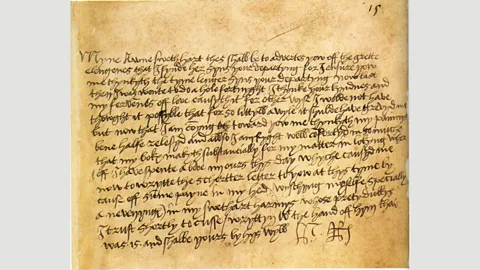 15
Myne awne swethart thes shall be to advertes yow off the grette
elengenes that I fynde her syns your departyng for I ensure yow
me thynkyth the tyme lenger syns your departyng now last
then I was wonte to do a hole fortnyght I thynke your kyndnes and
my fervenes off love causyth it for other wyse I wolde not have
thowght it possyble that for so littyll a wyle it shulde have grevyd me
but now that I am comyng toward yow me thynkyth my paynnys
bene halfe relesyd and allso I am ryght well comforted in so muche
that my boke makyth substantially for my matter in lokyng wheroff
off I have spente a bove iiii ours thys day wyche causyd me
now to wrytte the schortter letter to yow at thys tyme by
cause off sume payne in my hed wisshyng my selfe specially
a nevenyng in my swethart harmys whose prety dukkys
I trust shortly to cusse wryttyn w the hand off hym that
was is and shalbe yours by hys wyll H. R